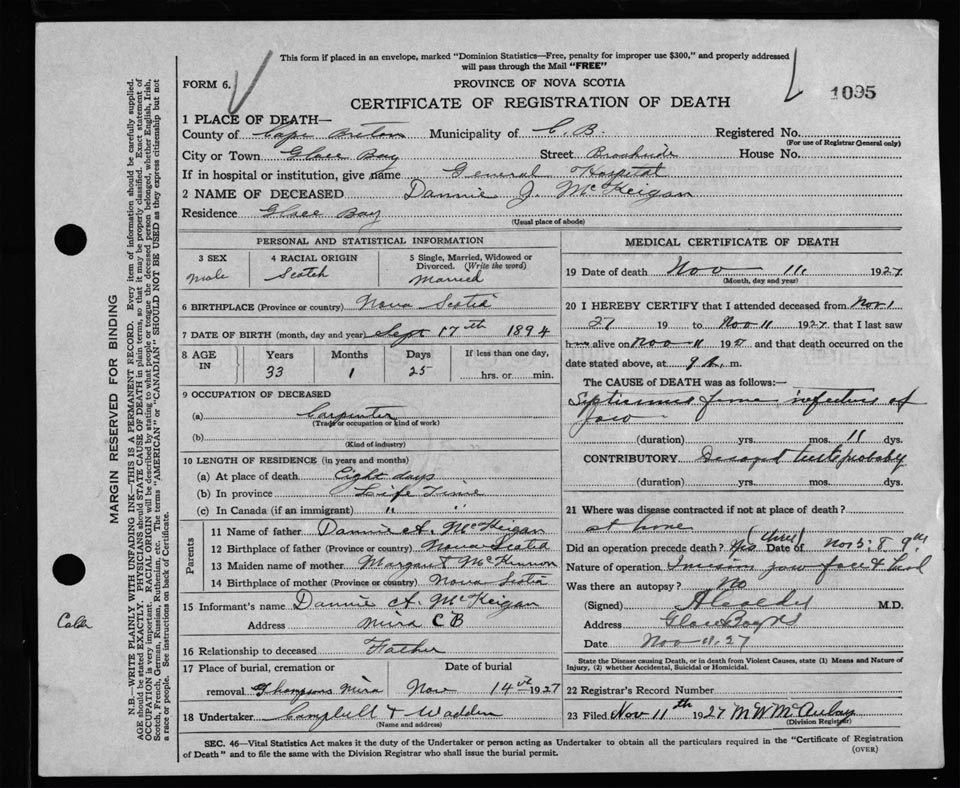 This form if placed in an envelope, marked "Dominion Statistics—Free, penalty for improper use $300," and properly addressed
will pass through the Mail "FREE"
FORM 6.
PROVINCE OF NOVA SCOTIA
1095
CERTIFICATE OF REGISTRATION OF DEATH
1 PLACE OF DEATH—
County of Cape Breton Municipality of C. B. Registered No.
(For use of Registrar General only)
City or Town Glace Bay Street House No.
If in hospital or institution, give name General Hospital
2 NAME OF DECEASED Dannie J. McKeigan
Residence Glace Bay
(Usual place of abode)
PERSONAL AND STATISTICAL INFORMATION
3 SEX
male
4 RACIAL ORIGIN
Scotch
5 Single, Married, Widowed or
Divorced. (Write the word)
Married
6 BIRTHPLACE (Province or country) Nova Scotia
7 DATE OF BIRTH (month, day and year) Sept 17th 1894
8 AGE
IN
Years
33
Months
1
Days
25
If less than one day,
hrs. or min.
9 OCCUPATION OF DECEASED
(a) Carpenter
(Trade or occupation or kind of work)
(b)
(Kind of industry)
10 LENGTH OF RESIDENCE (in years and months)
(a) At place of death Eight days
(b) In province Life Time
(c) In Canada (if an immigrant) " "
Parents
11 Name of father Dannie A. McKeigan
12 Birthplace of father (Province or country) Nova Scotia
13 Maiden name of mother Margaret McKinnon
14 Birthplace of mother (Province or country) Nova Scotia
15 Informant's name Dannie A. McKeigan
Address Mira C B
16 Relationship to deceased Father
17 Place of burial, cremation or Date of burial
removal Thompsons Mira Nov 14th 1927
18 Undertaker Campbell & Wadden
(Name and address)
MEDICAL CERTIFICATE OF DEATH
19 Date of death Nov 11 1927
(Month, day and year)
20 I HEREBY CERTIFY that I attended deceased from Nov 1
27 19 to Nov 11 1927 that I last saw
him alive on Nov 11 1927 and that death occurred on the
date stated above, at 9 m.
The CAUSE of DEATH was as follows:—
from infection of
jaw
(duration) yrs. mos. 11 dys.
CONTRIBUTORY probably
(duration) yrs. mos. dys.
21 Where was disease contracted if not at place of death?
at home
Did an operation precede death? Yes (three) Date of Nov 5. 8 9th
Nature of operation Incision jaw face &
Was there an autopsy? No
(Signed) M.D.
Address Glace Bay NS
Date Nov 11. 27
State the Disease causing Death, or in death from Violent Causes, state (1) Means and Nature of
Injury, (2) whether Accidental, Suicidal or Homicidal.
22 Registrar's Record Number
23 Filed Nov 11th 1927 M W McAulay
(Division Registrar)
SEC. 46—Vital Statistics Act makes it the duty of the Undertaker or person acting as Undertaker to obtain all the particulars required in the "Certificate of Registration
of Death" and to file the same with the Division Registrar who shall issue the burial permit.
(OVER)
MARGIN RESERVED FOR BINDING
N.B.—WRITE PLAINLY WITH UNFADING INK—THIS IS A PERMANENT RECORD. Every item of information should be carefully supplied.
AGE should be stated EXACTLY. PHYSICIANS should STATE CAUSE OF DEATH in plain terms, so that it may be properly classified. Exact statement of
OCCUPATION is very important. RACIAL ORIGIN will be described by stating to what people or tongue the deceased person belonged, whether English, Irish,
Scotch, French, German, Russian, Ruthenian, etc. The terms "AMERICAN" or "CANADIAN" SHOULD NOT BE USED as they express citizenship but not
a race or people. See instructions on back of Certificate.